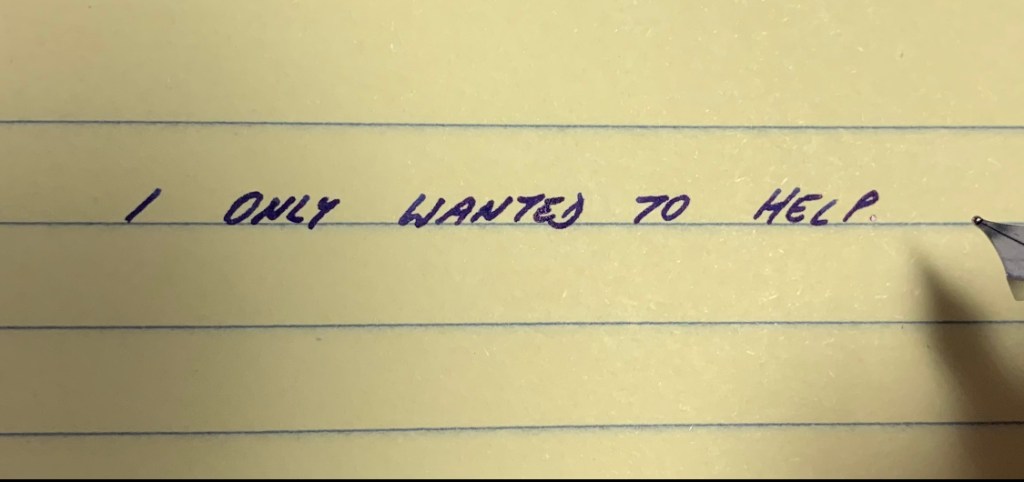 I ONLY WANTED TO HELP.